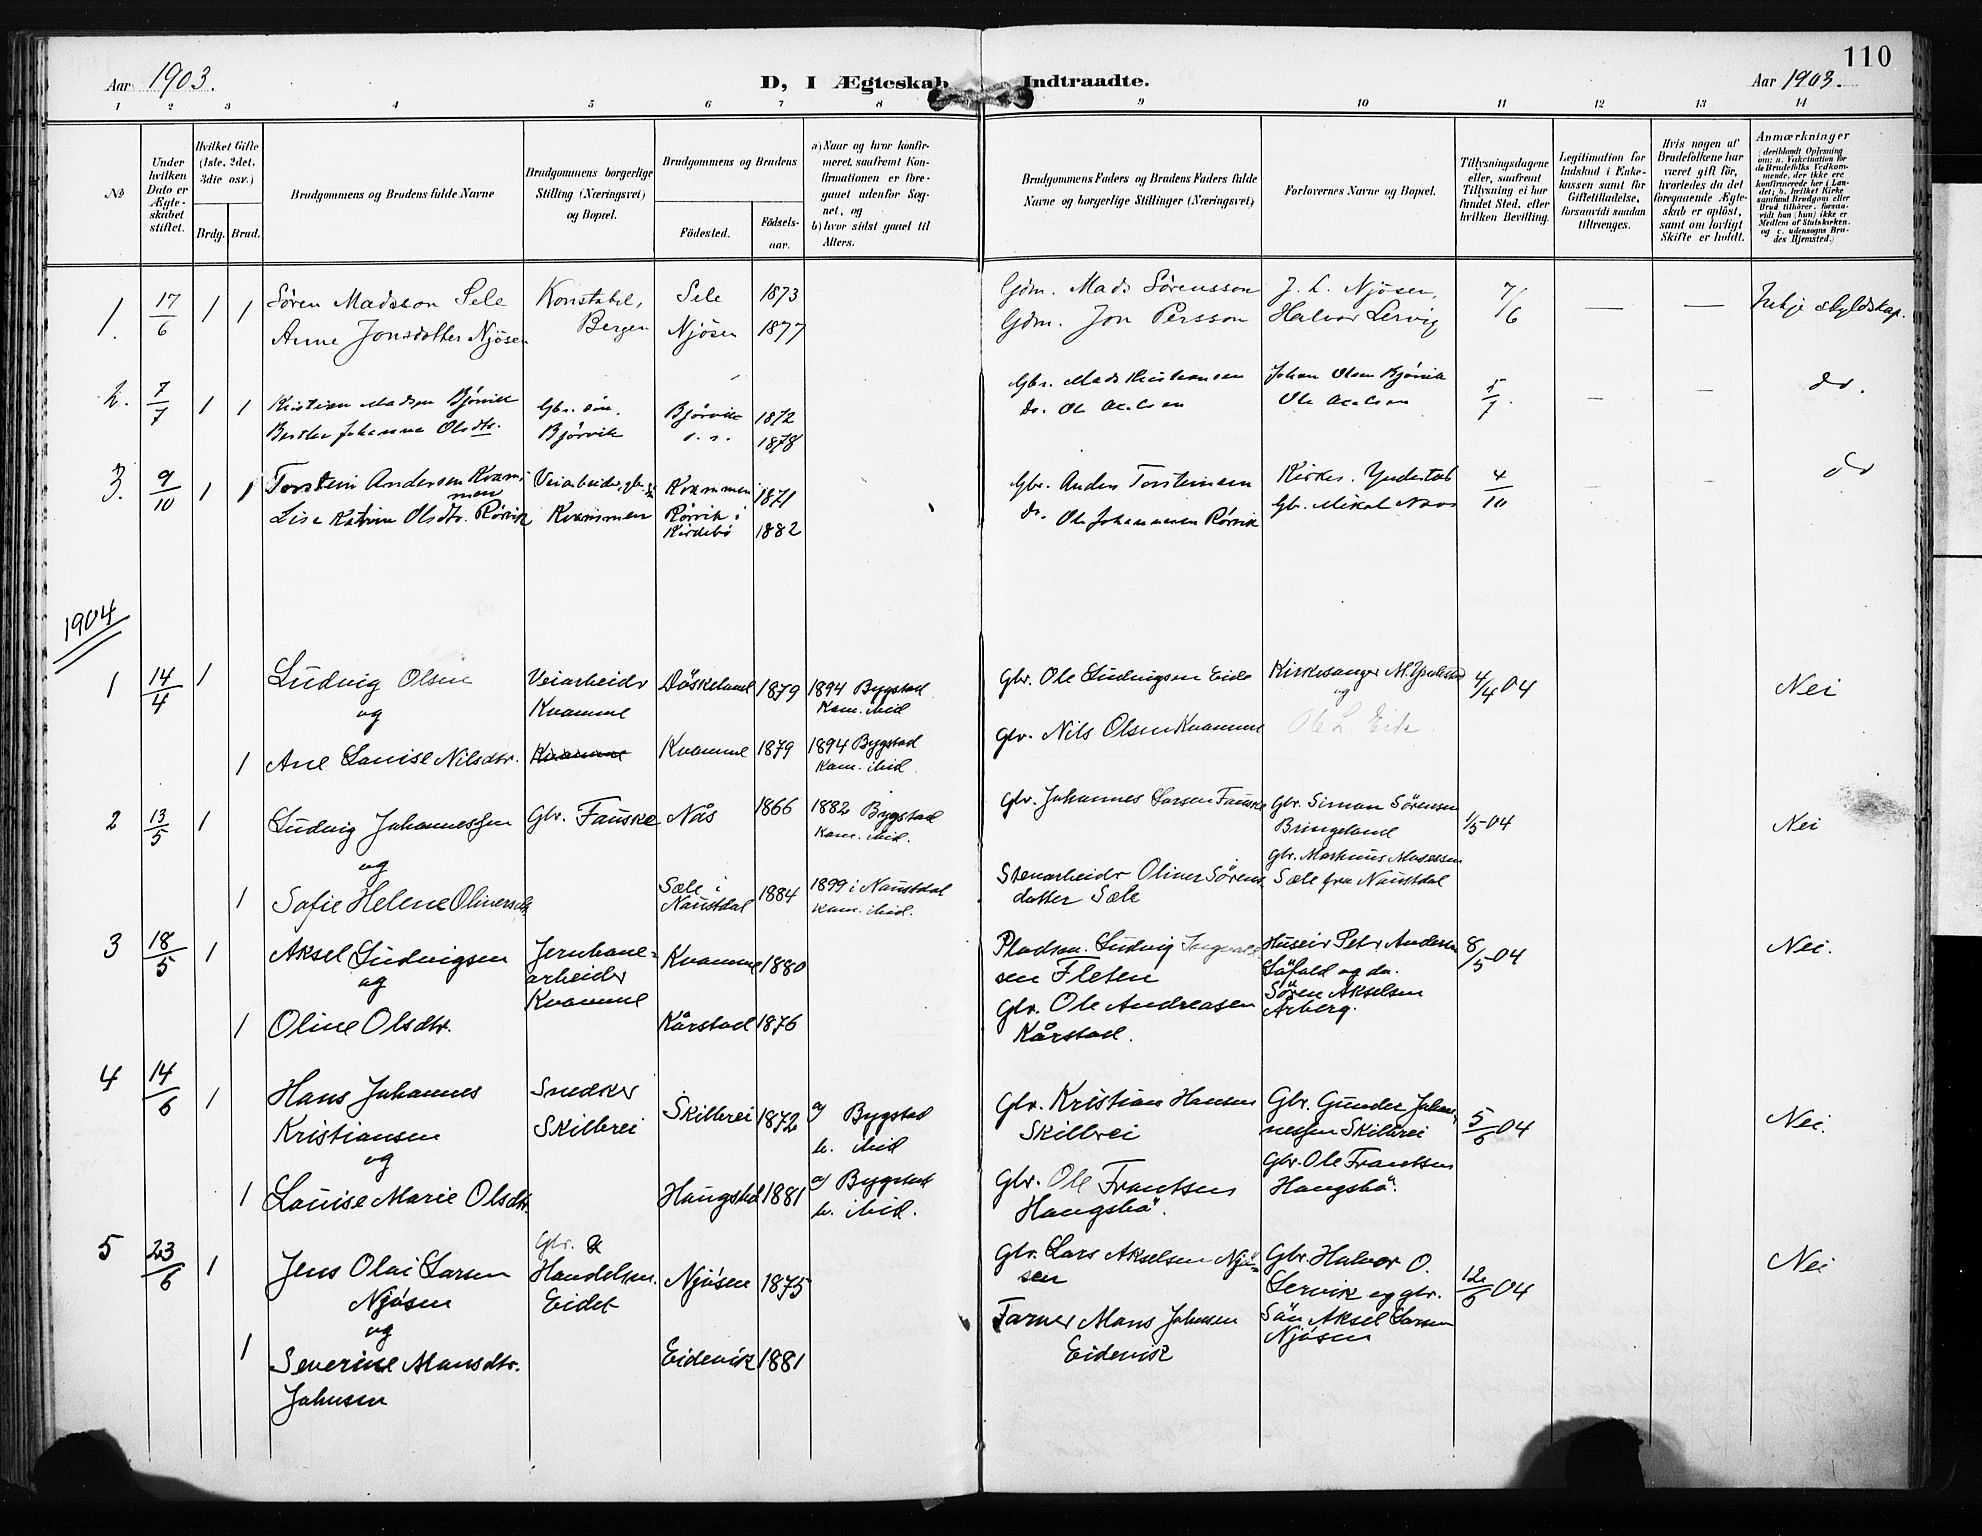 110
Aar 1903.
D, I Ægteskab Indtraadte.
Aar 1903.
1 2 3 4 5 6 7 8 9 10 11 12 13 14
No
Under hvilken Dato er Ægteskabet stiftet.
Hvilket Gifte (1ste, 2det, 3die osv.)
Brdg. Brud.
Brudgommens og Brudens fulde Navne
Brudgommens borgerlige Stilling (Næringsvei) og Bopæl.
Brudgommens og Brudens
Födested.
Födselsaar.
a) Naar og hvor konfirmeret, saafremt Konfirmationen er foregaaet udenfor Sognet, og
b) hvor sidst gaaet til Alters.
Brudgommens Faders og Brudens Faders fulde Navne og borgerlige Stillinger (Næringsvei)
Forlovernes Navne og Bopæl.
Tillysningsdagene eller, saafremt Tillysning ei har fundet Sted, efter hvilken Bevilling.
Legitimation for Indskud i Enkekassen samt for Giftetilladelse, forsaavidt saadan tiltrænges.
Hvis nogen af Brudefolkene har været gift för, hvorledes da det foregaaende Ægteskab er oplöst, samt om lovligt Skifte er holdt.
Anmærkninger
1. 17/6 1 1 Søren Madsson Sele Konstabel, Sele 1873 Gdm. Mads Sørensson J. L. Njøsen, 7/6 — —
Anne Jonsdotter Njøsen Bergen Njøsen 1877 Gdm. Jon Persson Halvor Lervig
2. 7/7 1 1 Kristian Madsen Bjørvik Gbr. søn. Bjørvik 1872 Gbr. Mads Kristiansen Johan Olsen Bjørvik 5/7. — — do.
Berthe Johanne Olsdtr. Bjørvik 1878 do. Ole
3. 9/10 1 1 Torstein Andersen Kvammen Veiarbeider, Kvammen 1871 Gbr. Anders Torsteinsen Kirkes. Yndestad 4/10 do
Lise Katrine Olsdtr. Rørvik Kvammen Rørvik i 1882 do. Ole Johannessen Rørvik Gbr. Mikal
1904
1 14/4 1 Ludvig Olsen Veiarbeidr Döskeland 1879 1894 Bygstad Gbr. Ole Ludvigsen Eide Kirkesanger M. Yndestad 4/4 04 Nei
og Kvamme Kom. ibid og
1 Ane Louise Nilsdtr. Kvamme Kvamme 1879 1894 Bygstad Gbr. Nils Olsen Kvamme Ole L. Eide
Kom. ibid.
2 13/5 1 Ludvig Johannessen Gbr. Fauske Nås 1866 1882 Bygstad Gbr. Johannes Larsen Fauske Gbr. Simon Sörensen 1/5 04 Nei
og Kom. ibid. Bringeland
1 Sofie Helene Oliversdtr Sæle i Naustdal 1884 1899 i Naustdal Stenarbeidr Oliver Sörens Gbr. Markus Mosessen
Kom. ibid. datter Sæle Sæle fra Naustdal
3 18/5 1 Aksel Ludvigsen Jernbane- Kvamme 1880 Pladsm. Ludvig Ingvald Huseir Petr Andersen 8/5 04 Nei.
og arbeidr sen Fleten og do.
Kvamme Sören Akselsen
1 Oline Olsdtr. Kårstad 1876 Gbr. Ole Andreasen Årberg.
Kårstad.
4 14/6 1 Hans Johannes Snedker Skilbrei 1872 a) Bygstad Gbr. Kristian Hansen Gbr. Gunder Johan- 5/6 04 Nei.
Kristiansen Skilbrei b. ibid Skilbrei nessen Skilbrei
og
1 Louise Marie Olsdtr. 1881 a) Bygstad Gbr. Ole Frantsen Gbr. Ole Frantsen
b. ibid. Haugsbö. Haugsbö.
5 23/6 1 Jens Olai Larsen Gbr. & Njøsen 1875 Gbr. Lars Akselsen Njö- Gbr. Halvor O. 12/6 04 Nei
Njøsen Handelsm. sen Lervik og gbr.
og Eidet Farver Mons Johnsen Sön Aksel Larsen
1 Severine Monsdtr. Eidevik 1881 Eidevik Njøsen
Johnsen